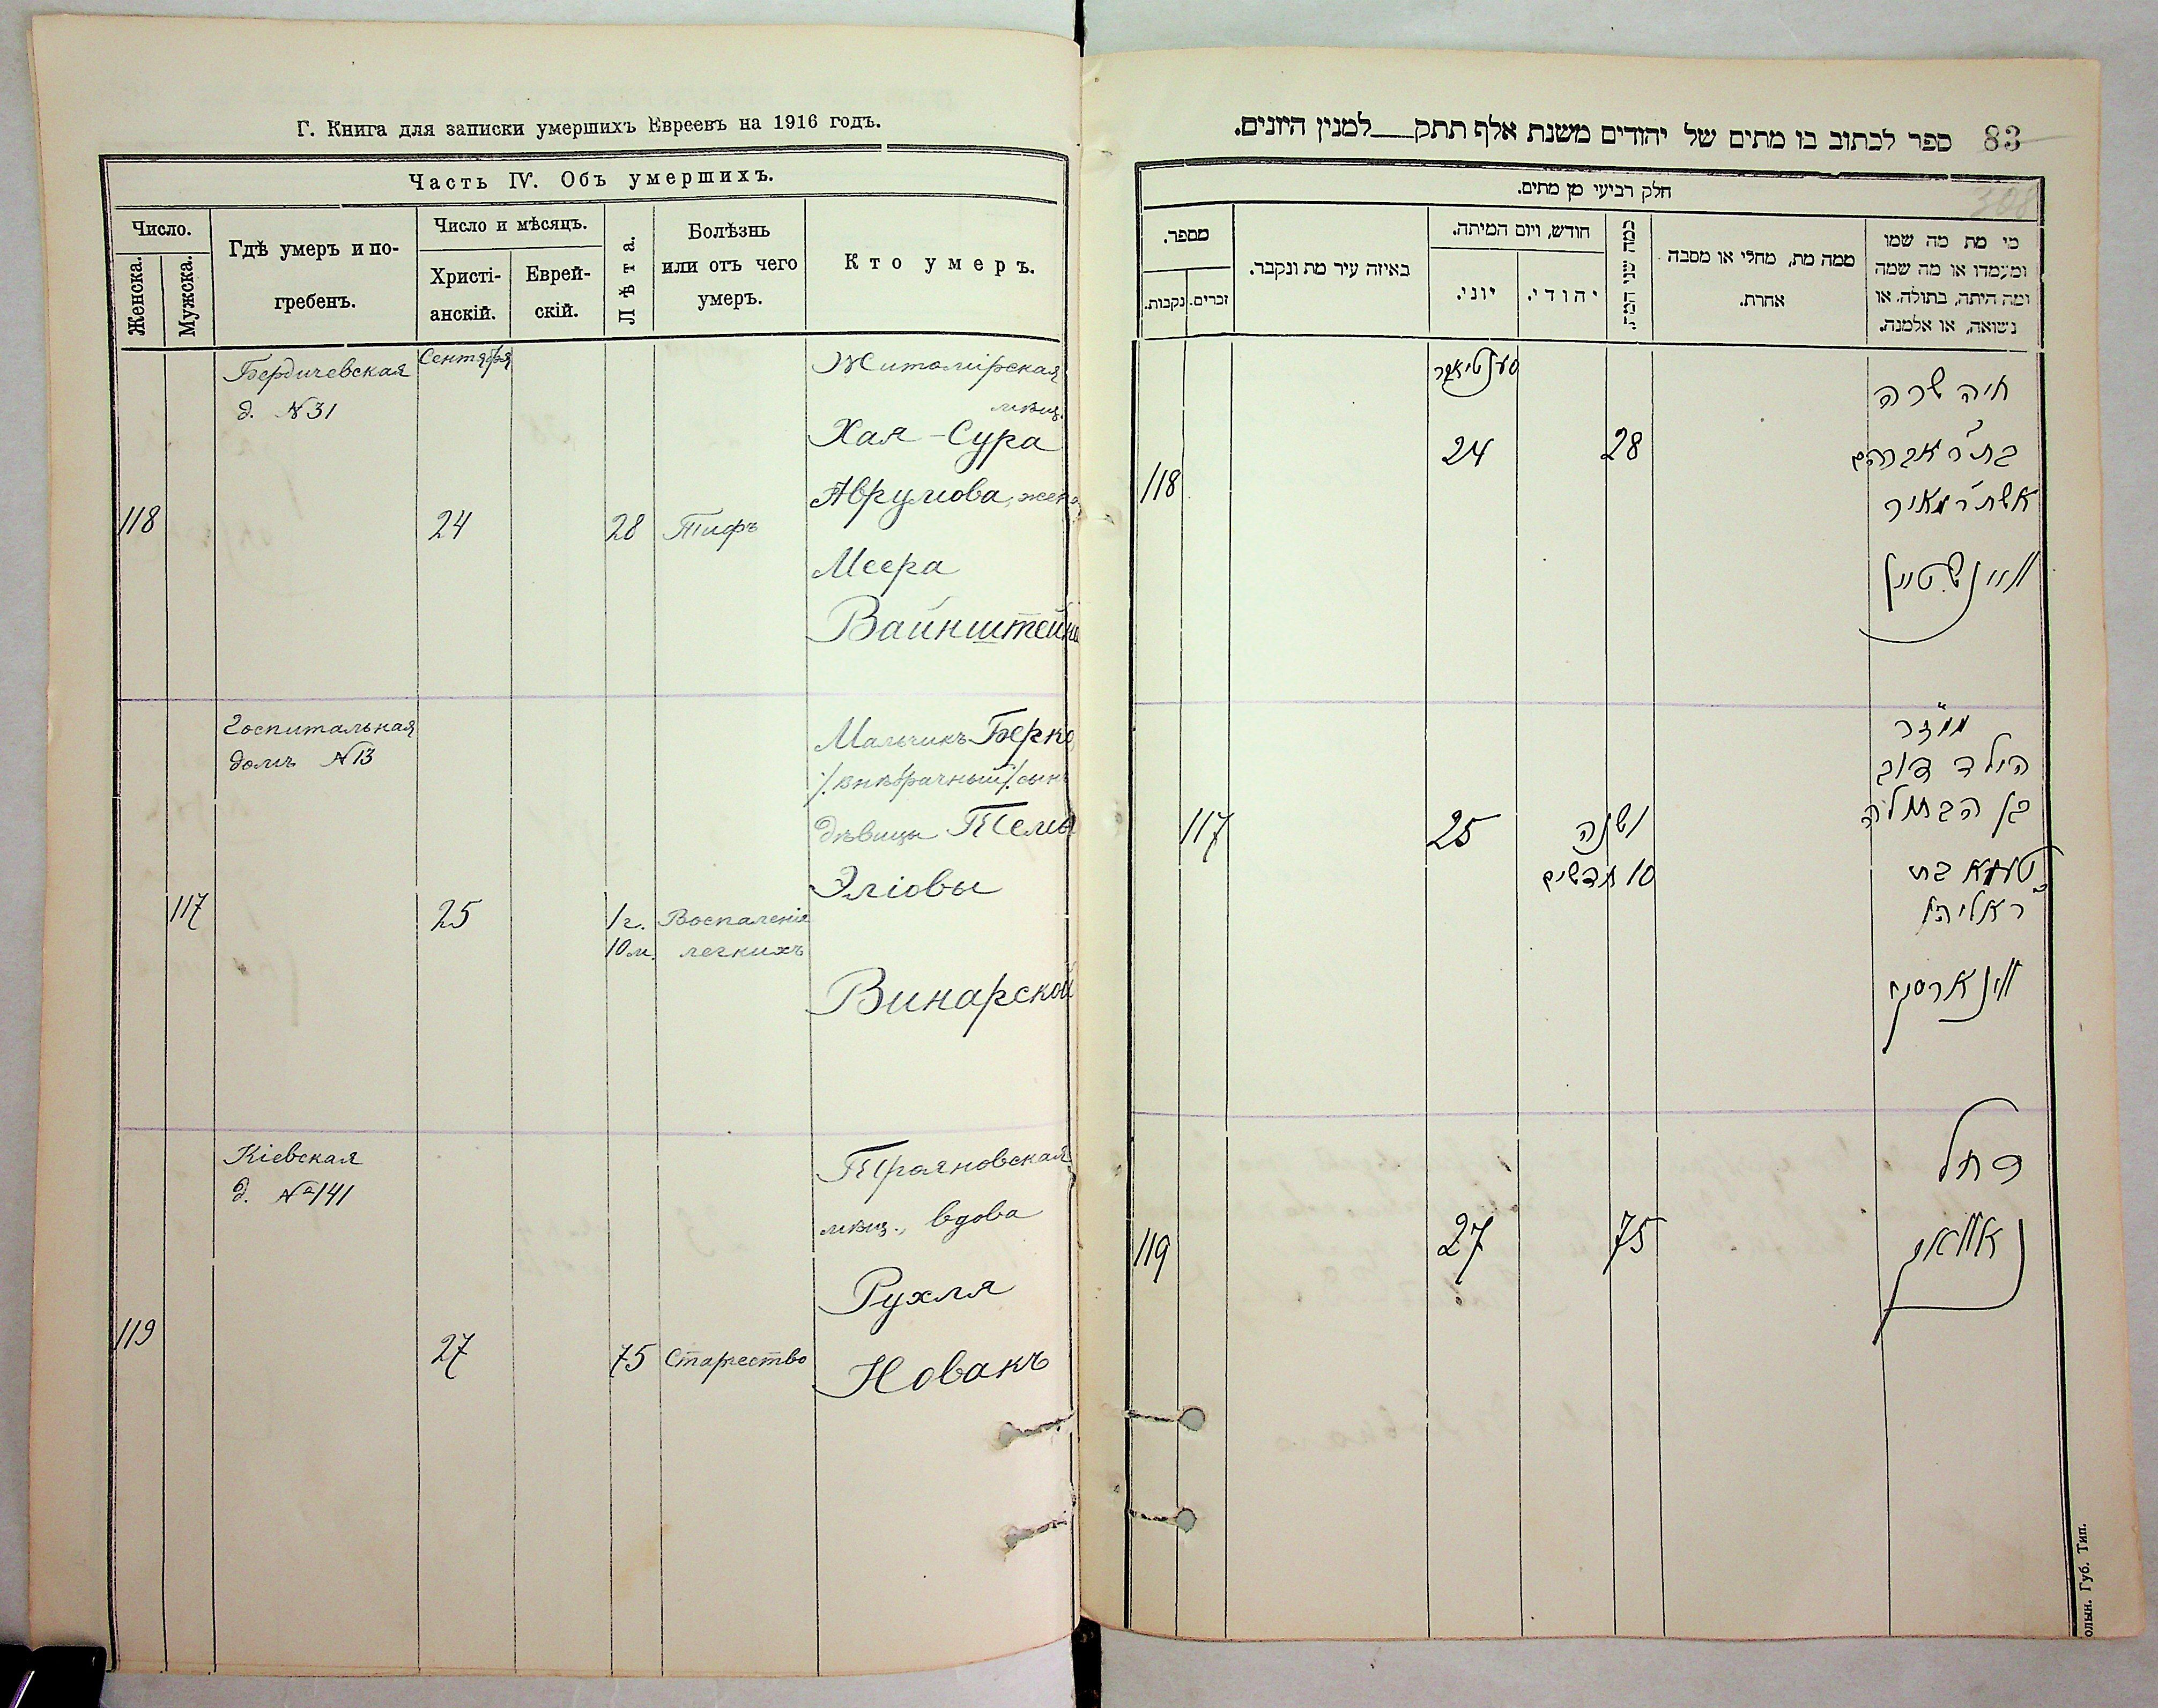 Г. Книга для записки умершихъ Евреевъ на 1916 годъ.
Часть IV. Объ умершихъ.
Число.
Женска.
Мужска.
Гдѣ умеръ и по-
гребенъ.
Число и мѣсяцъ.
Христі-
анскій.
Еврей-
скій.
Лѣта.
Болѣзнь
или отъ чего
умеръ.
Кто умеръ.
Бердичевская
д. №31
Сентября
118
24
28
Тифъ
Житомірская
мѣщ.
Хая-Сура
Аврумова, жена
Меера
Вайнштейнъ
Госпитальная
домъ №13
117
25
1 г.
10 м.
Воспаленіе
легкихъ
Мальчикъ Берко
/внѣбрачный/ сынъ
дѣвицы Темы
Эліовы
Винарской
Кіевская
д. № 141
119
27
75
Старчество
Трояновская
мѣщ., вдова
Рухля
Новакъ
83
ספר לכתוב בו מתים של יהודים משנת אלף תתק למנין היונים.
308
חלק רביעי מן מתים.
מספר.
נקבות.
זכרים.
באיזה עיר מת ונקבר.
חודש, ויום המיתה.
יוני.
יהודי.
כמה שני המת.
ממה מת, מחלי או מסבה
אחרת.
מי מת מה שמו
ומעמדו או מה שמה
ומה היתה, בתולה, או
נשואה, או אלמנה.
סענטיאבר
118
24
28
חיה שרה
בת ר' אברהם
אשת ר' מאיר
וויינשטיין
117
25
1 שנה
10 חדשים
הילד דוב
בן הבתולה
טעמא בת
ר' אליהו
ווינארסקי
119
27
75
רחל
נאוואק
олын. Губ. Тип.